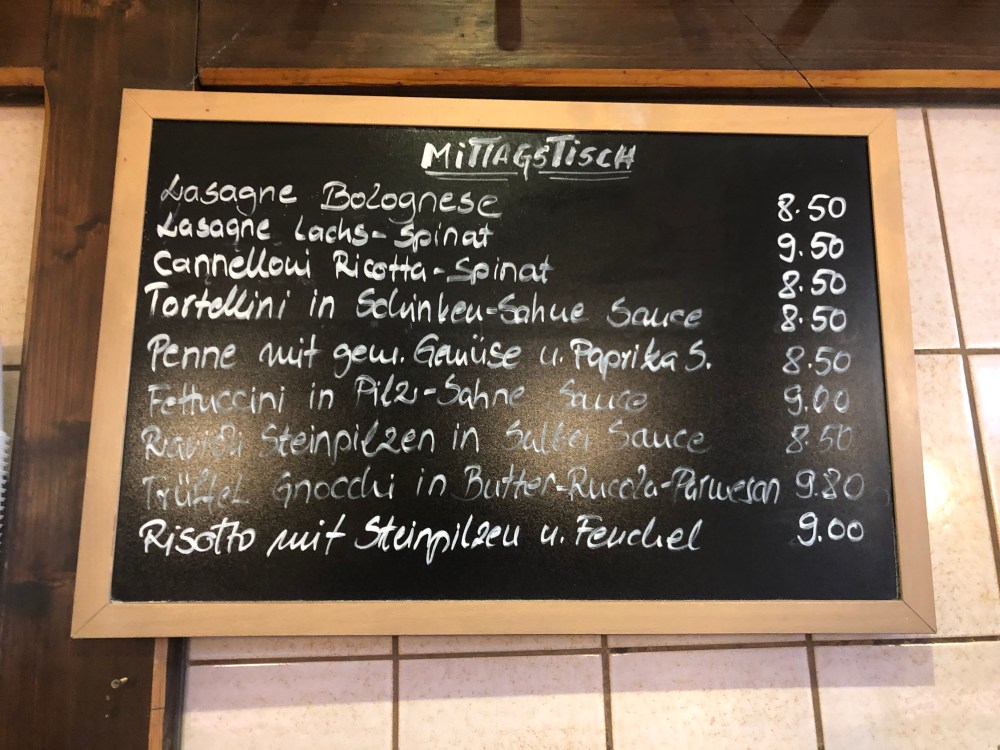 MITTAGSTISCH
Lasagne Bolognese 8.50
Lasagne Lachs-Spinat 9.50
Cannelloni Ricotta-Spinat 8.50
Tortellini in Schinken-Sahne Sauce 8.50
Penne mit gem. Gemüse u. Paprika S. 8.50
Fettuccini in Pilz-Sahne Sauce 9.00
Ravioli Steinpilzen in Salbei Sauce 8.50
Trüffel Gnocchi in Butter-Rucola-Parmesan 9.80
Risotto mit Steinpilzen u. Fenchel 9.00